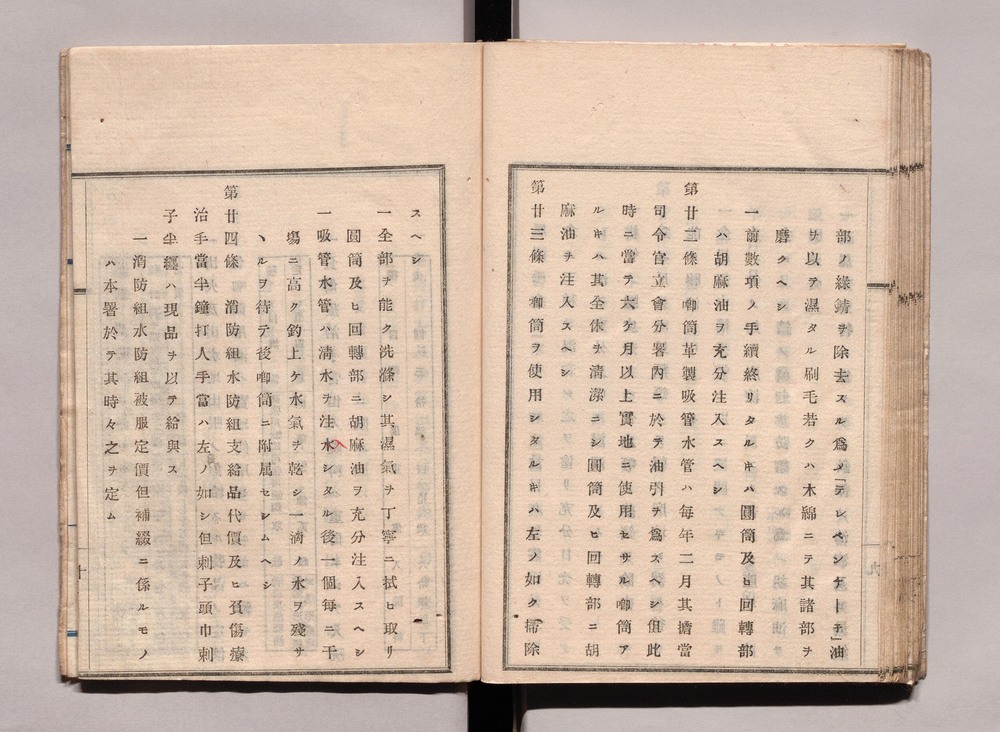 部ノ綠錆ヲ除去スル爲メ「テレペンテーナ」油
ヲ以テ濕タル刷毛若クハ木綿ニテ其諸部ヲ
磨クヘシ
一前數項ノ手續終リタルキハ圓筒及ヒ回轉部
ハ胡麻油ヲ充分注入スヘシ
第廿二條 喞筒革製吸管水管ハ每年二月其擔當
司令官立會分署內ニ於テ油引ヲ爲スヘシ但此
時ニ當テ六ケ月以上實地ニ使用セサル喞筒ア
ルキハ其全体ヲ淸潔ニシ圓筒及ヒ回轉部ニ胡
麻油ヲ注入スヘシ
第廿三條 喞筒ヲ使用シタルキハ左ノ如ク掃除
スヘシ
一全部ヲ能ク洗滌シ其濕氣ヲ丁寧ニ拭ヒ取リ
圓筒及ヒ回轉部ニ胡麻油ヲ充分注入スヘシ
一吸管水管ハ淸水ヲ注水シタル後一個每ニ干
塲ニ高ク釣上ケ水氣ヲ乾シ一滴ノ水ヲ殘サ
ヽルヲ待テ後喞筒ニ附属セシムヘシ
第廿四條 消防組水防組支給品代價及ヒ負傷療
治手當半鐘打人手當ハ左ノ如シ但刺子頭巾刺
子半纒ハ現品ヲ以テ給與ス
一消防組水防組被服定價但補綴ニ係ルモノ
ハ本署於テ其時々之ヲ定ム
九
十